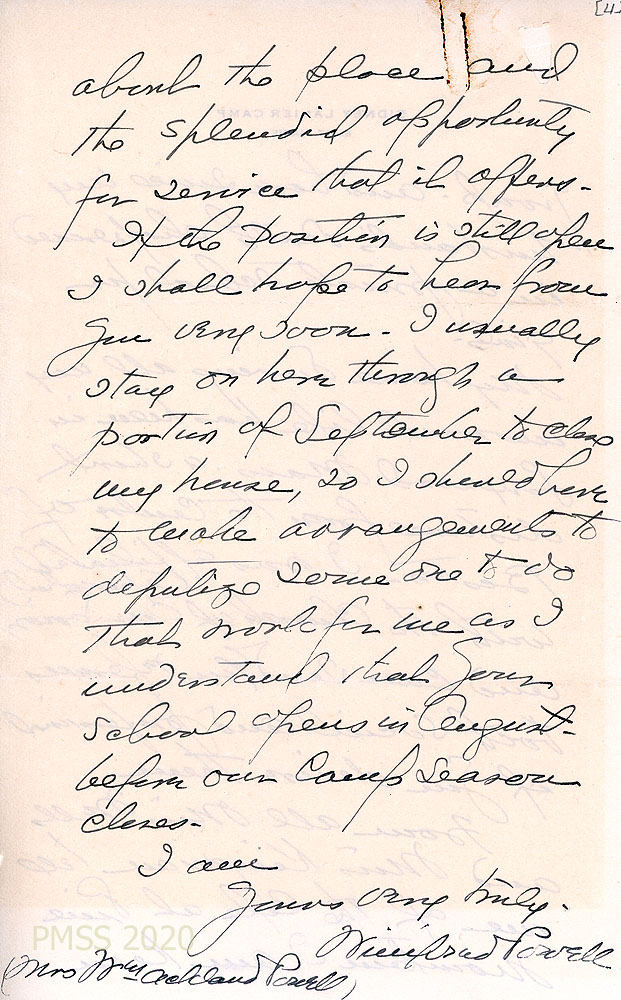 [4]
about the place and
the splendid opportunity
for service that it offers -
If the position is still open
I shall hope to hear from
you very soon - I usually
stay on here through a
portion of September to close
my house, so I should have
to make arrangements to
deputize some one to do
that work for me as I
understand that your
school opens in August -
before our Camp Season
closes -
I am
Yours very truly -
Winifred Powell
(Mrs Wm Ackland Powell)
PMSS 2020